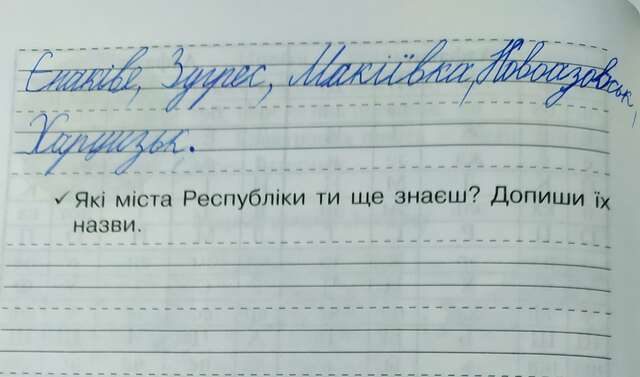 Єнакієве, Зугрес, Макіївка, Новоазовськ,
Харцизьк.
✓ Які міста Республіки ти ще знаєш? Допиши їх
назви.